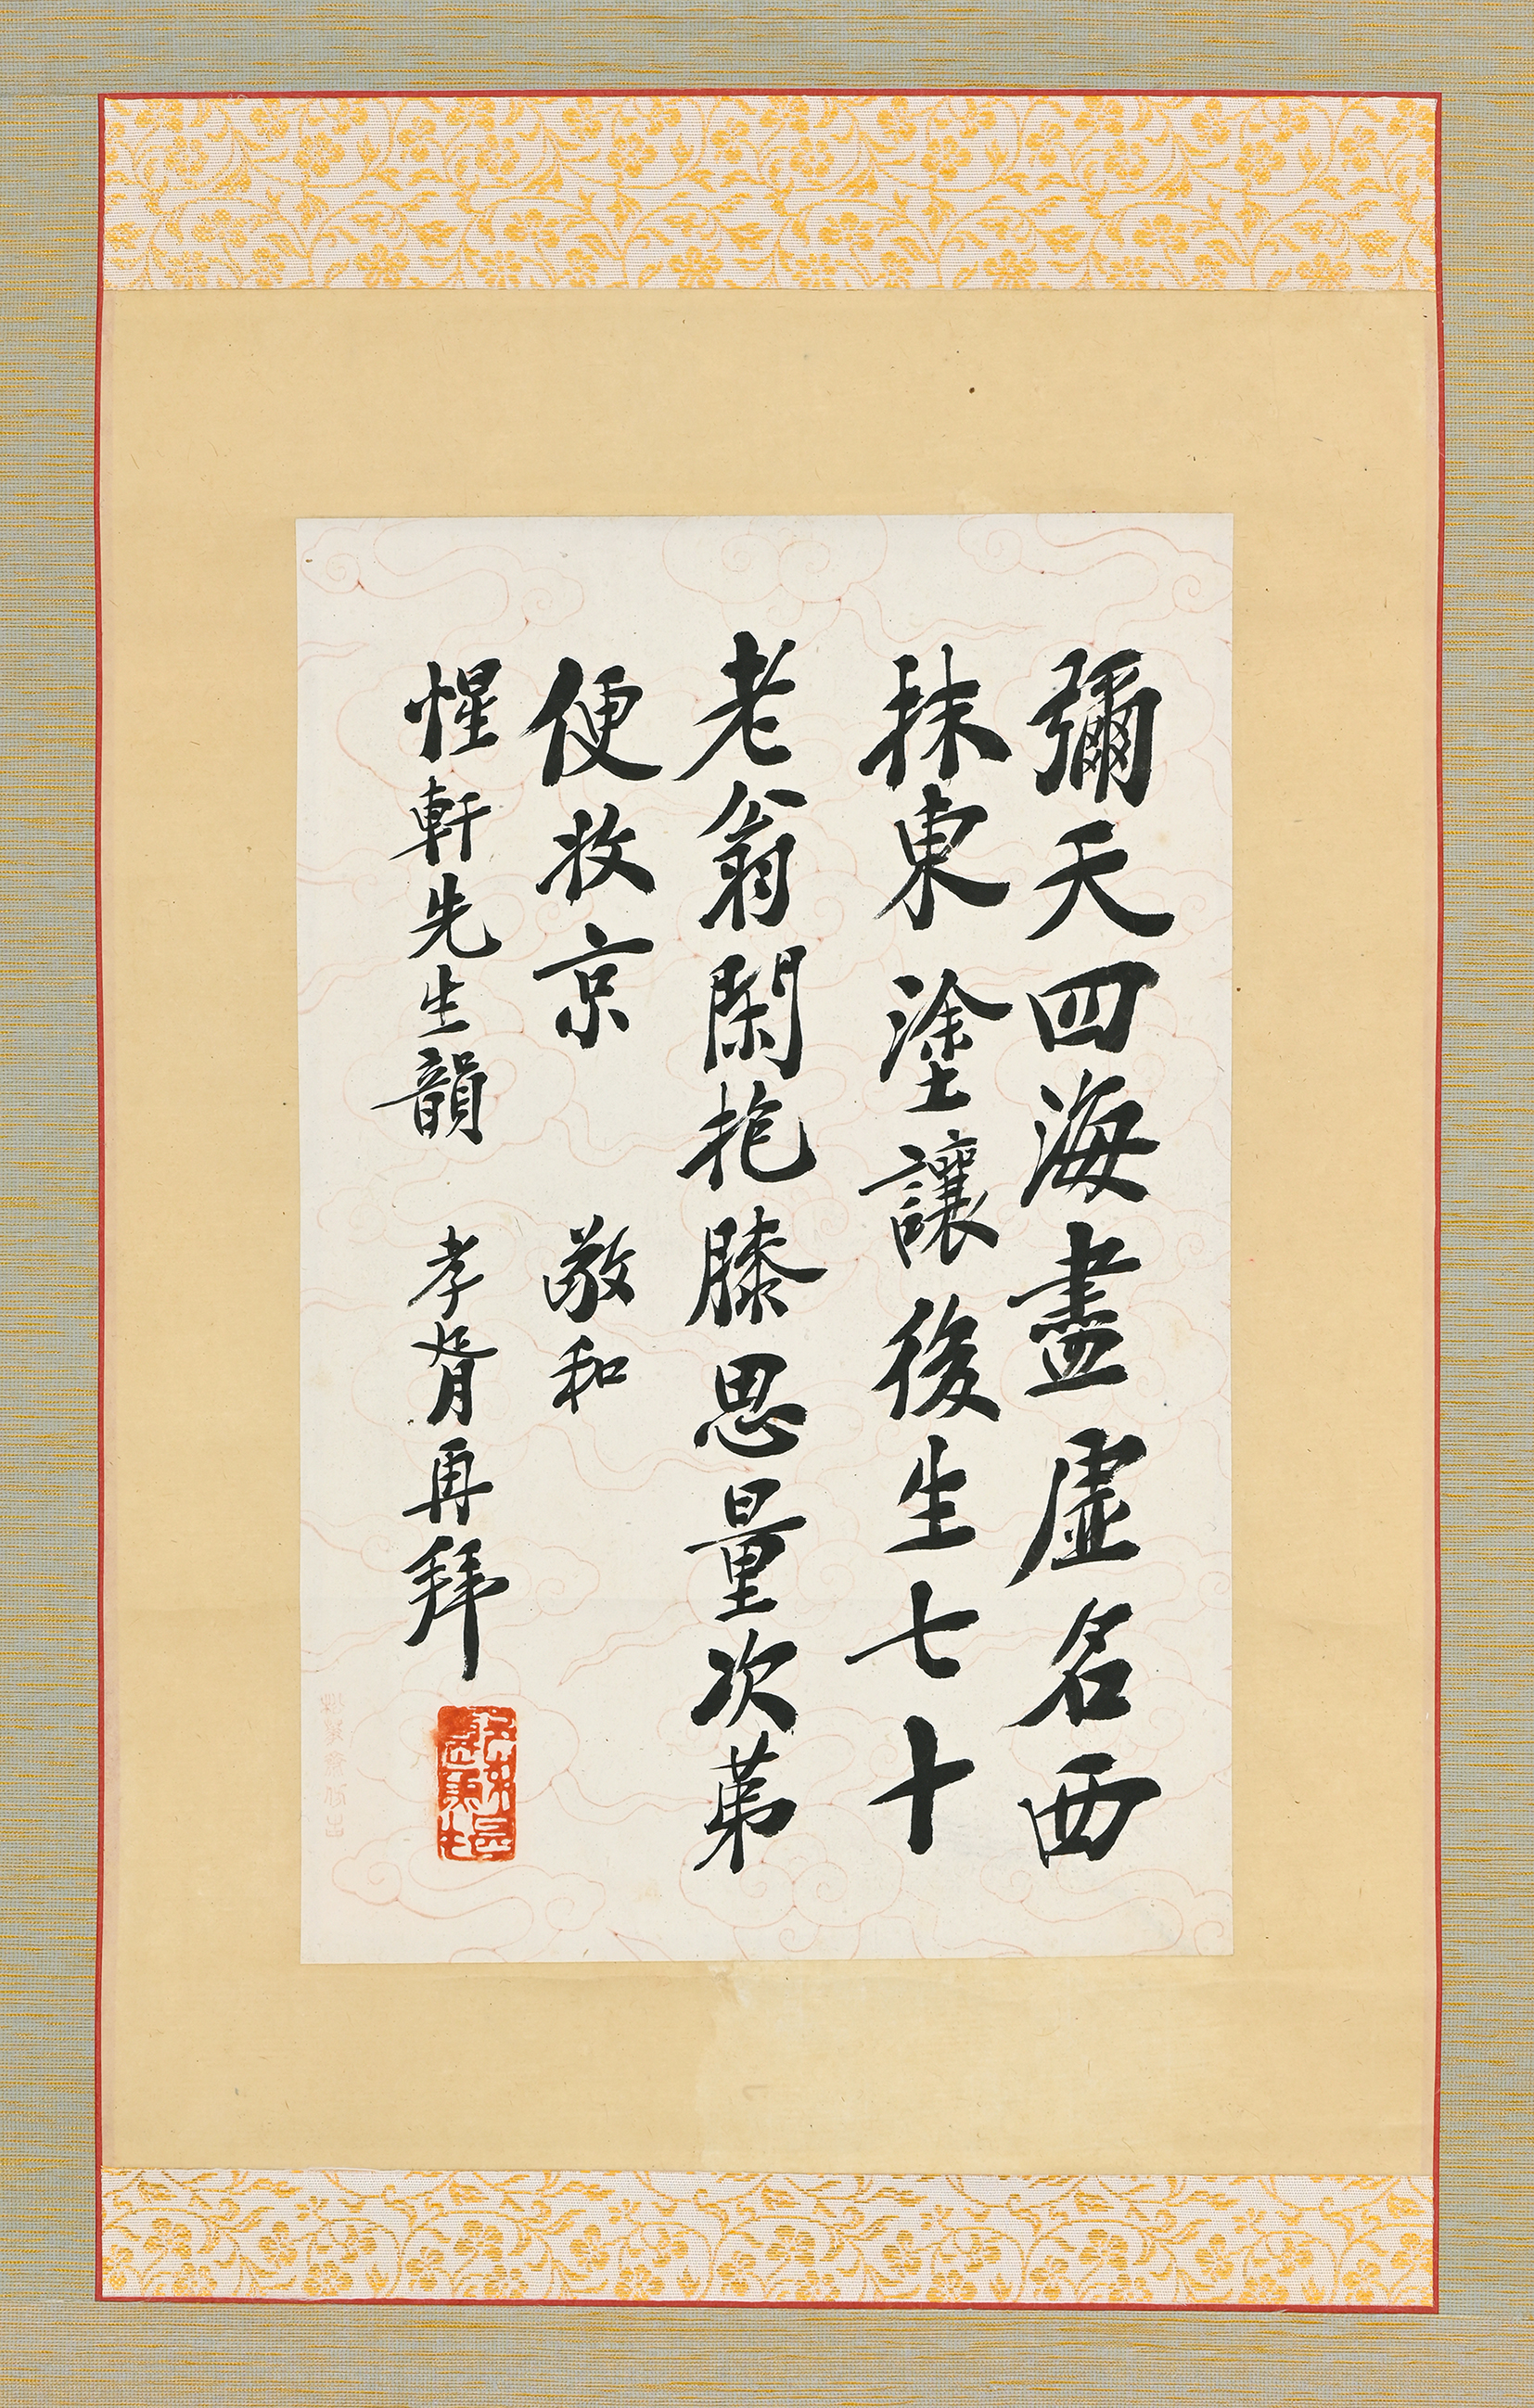 彌天四海盡虛名西
抹東塗讓後生七十
老翁閑抱膝思量次第
便收京　敬和
惺軒先生韻　孝胥再拜